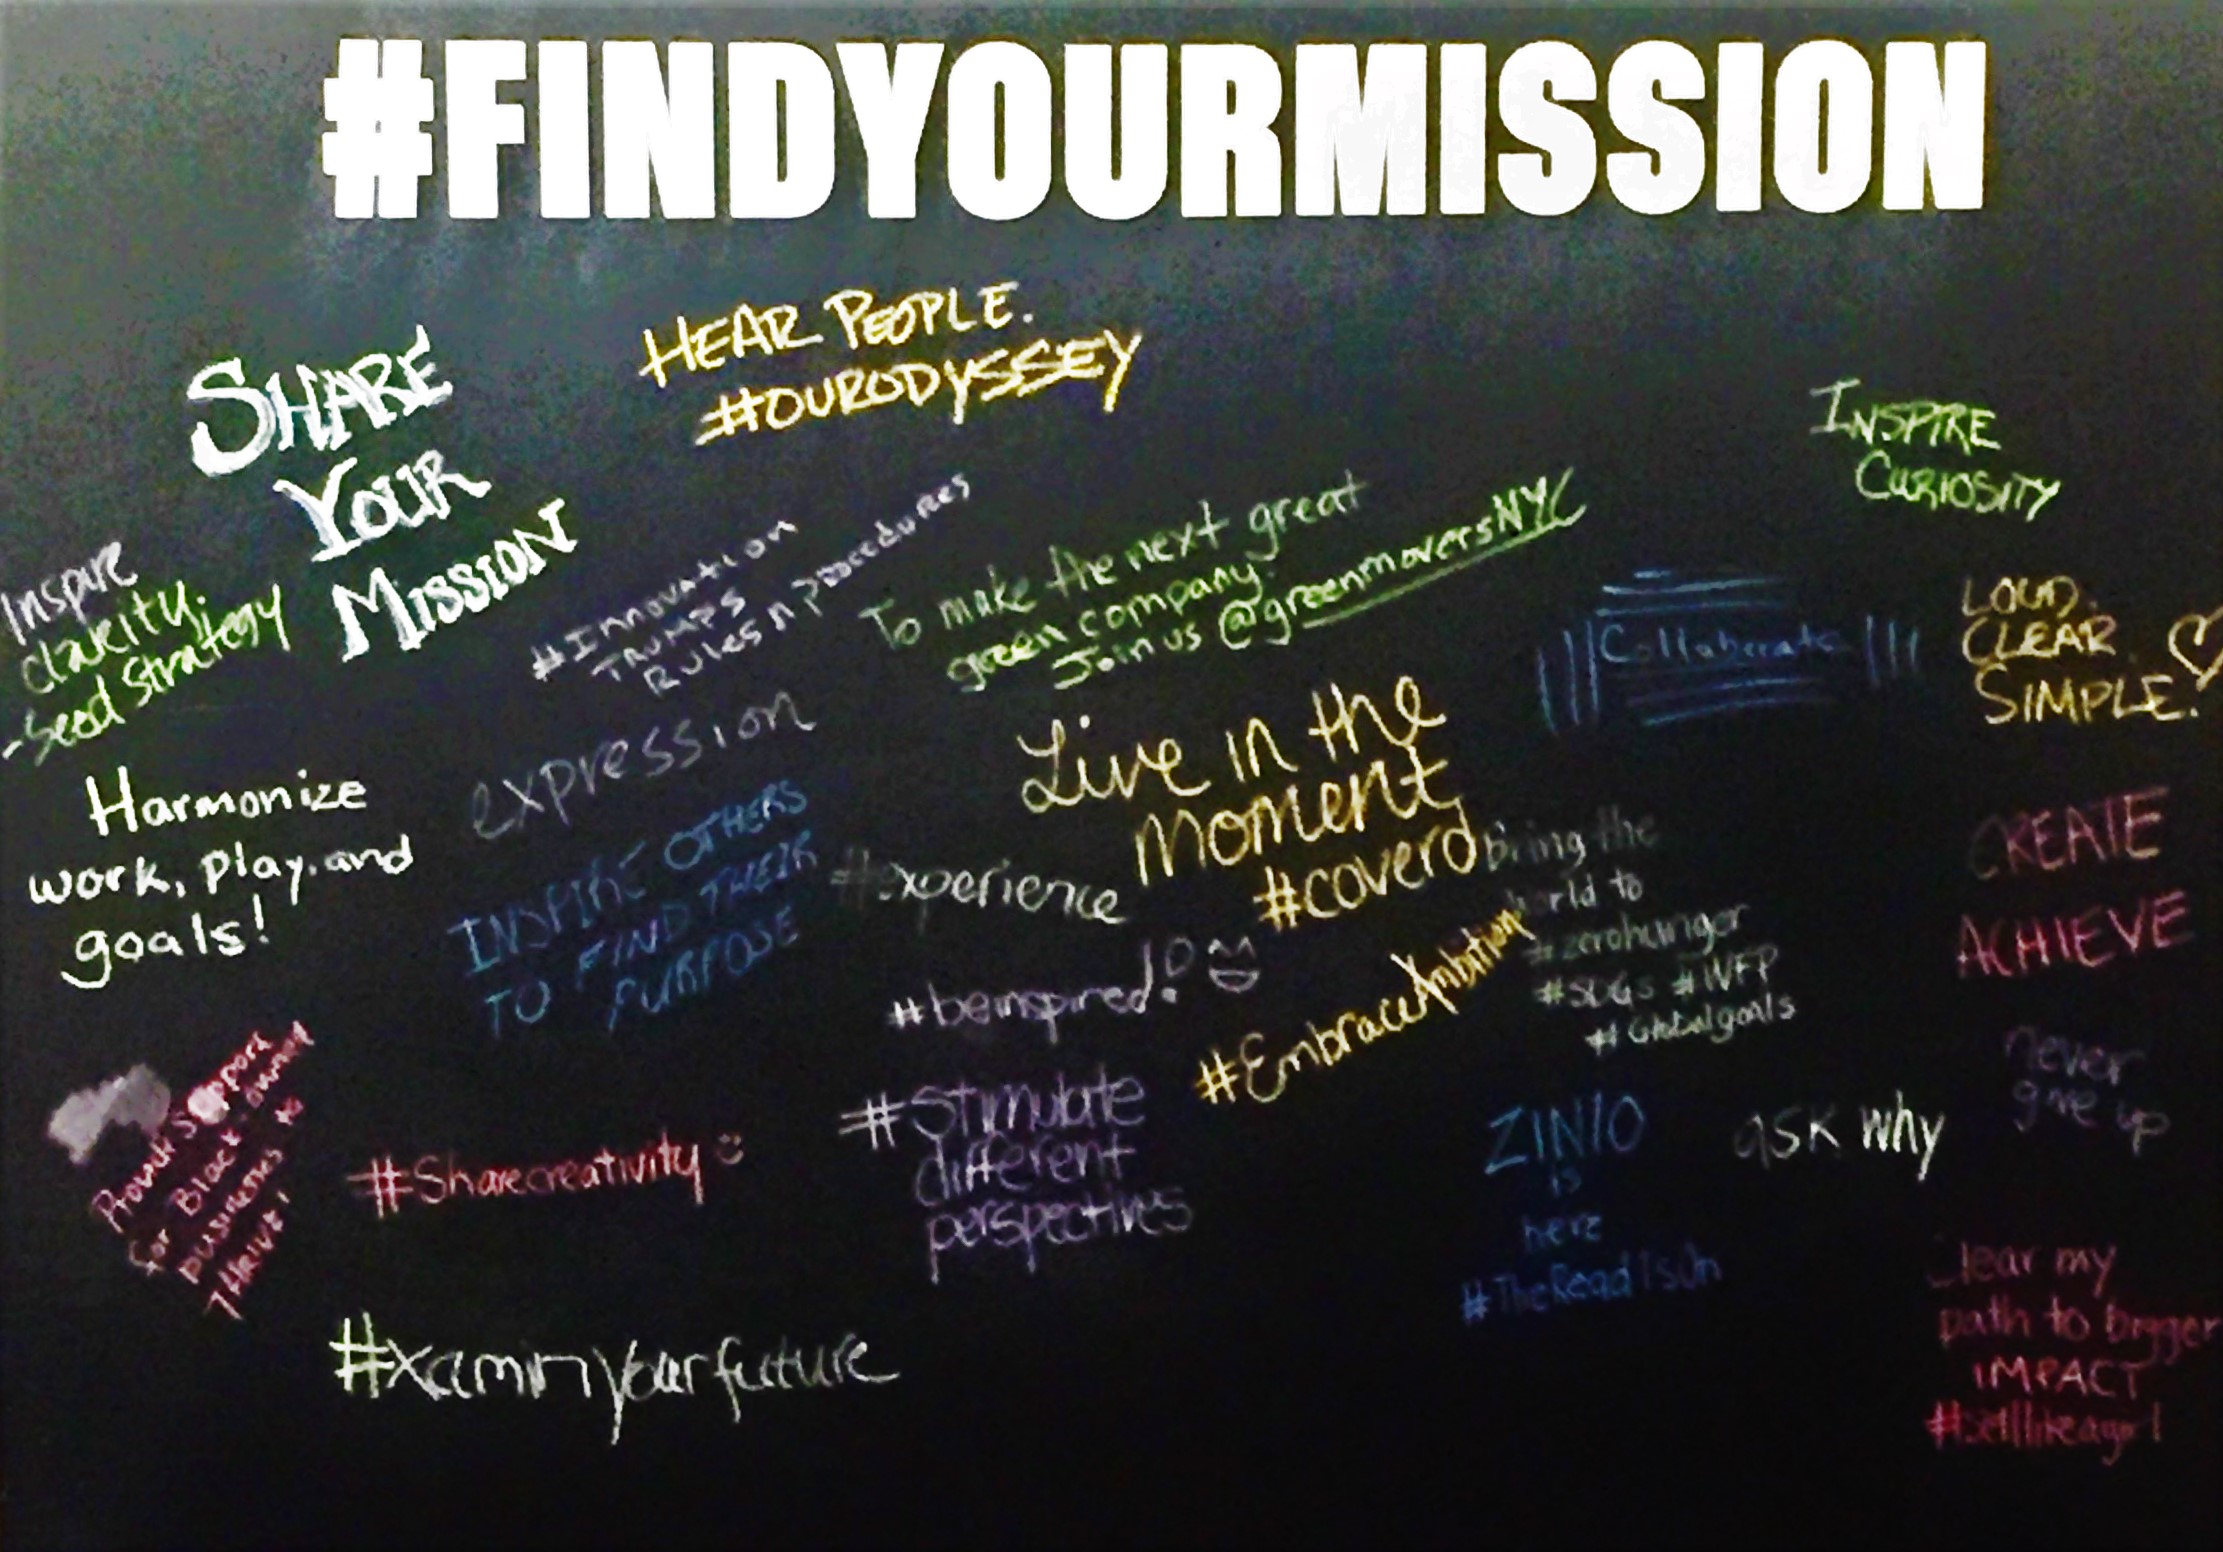 #FINDYOURMISSION
SHARE
YOUR
MISSION
HEAR PEOPLE.
#OURODYSSEY
INSPIRE
CURIOSITY
Inspire
clarity.
-Seed Strategy
#Innovation
TRUMPS
Rules n procedures
To make the next great
green company.
Join us @greenmoversNYC
Collaborate
LOUD.
CLEAR.
SIMPLE.
Harmonize
work, play, and
goals!
expression
INSPIRE OTHERS
TO FIND THEIR
PURPOSE
Live in the
Moment,
#coverd
#experience
Bring the
world to
#zerohunger
#SDGs #WFP
#Globalgoals
CREATE
ACHIEVE
#beinspired!
#EmbraceAmbition
never
give up
Proudly Support
for Black owned
businesses to
THRIVE!
#Sharecreativity
#Stimulate
different
perspectives
ZINIO
is
here
#TheReadIsOn
ask why
#xaminyourfuture
Clear my
path to bigger
IMPACT
#selllikeagirl